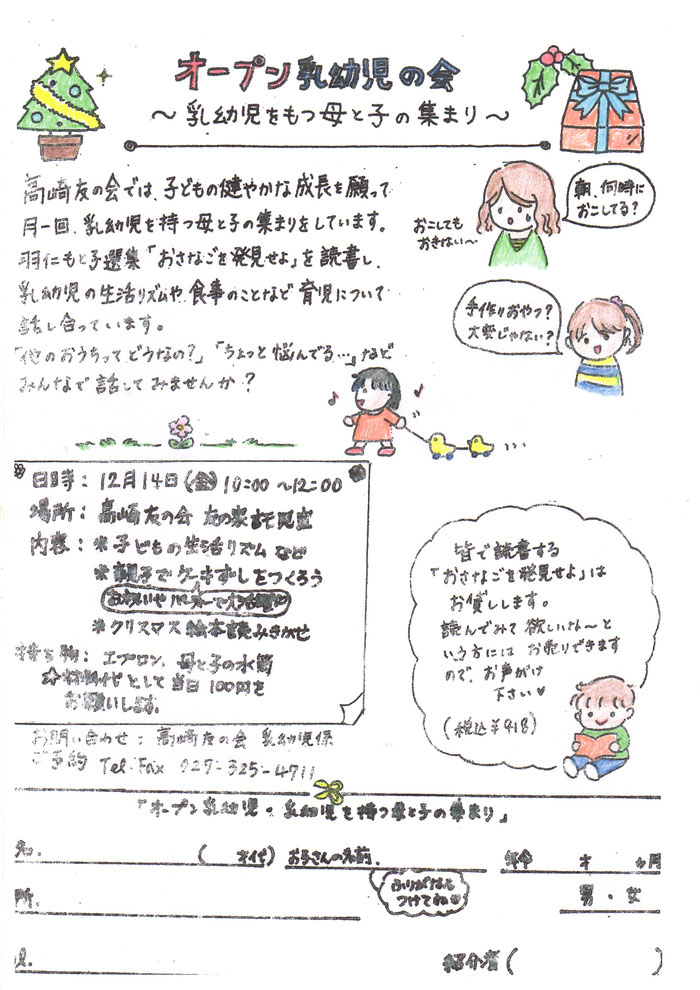 オープン乳幼児の会
～乳幼児をもつ母と子の集まり～
高崎友の会では、子どもの健やかな成長を願って
月一回、乳幼児を持つ母と子の集まりをしています。
羽仁もと子選集「おさなごを発見せよ」を読書し、
乳幼児の生活リズムや、食事のことなど育児について
話し合っています。
「他のおうちってどうなの？」「ちょっと悩んでる…」など
みんなで話してみませんか？
おこしても
おきない～
朝、何時に
おこしてる？
手作りおやつ？
大変じゃない？
日時：12月14日（金）10:00～12:00
場所：高崎友の会 友の家託児室
内容：＊子どもの生活リズムなど
＊親子でケーキずしをつくろう
お祝いやパーティーで大活躍
＊クリスマス絵本読みきかせ
持ち物：エプロン、母と子の水筒
☆材料代として当日100円を
お願いします。
お問い合わせ：高崎友の会 乳幼児係
ご予約 Tel・Fax 027-325-4711
皆で読書する
「おさなごを発見せよ」は
お貸しします。
読んでみて欲しいな～と
いう方には お売りできます
ので、お声がけ
下さい♥
（税込￥918）
「オープン乳幼児・乳幼児を持つ母と子の集まり」
名.（ 才代） お子さんの名前. 年令 才 ヵ月
所. ふりがなも
つけてね 男・女
l. 紹介者（ ）